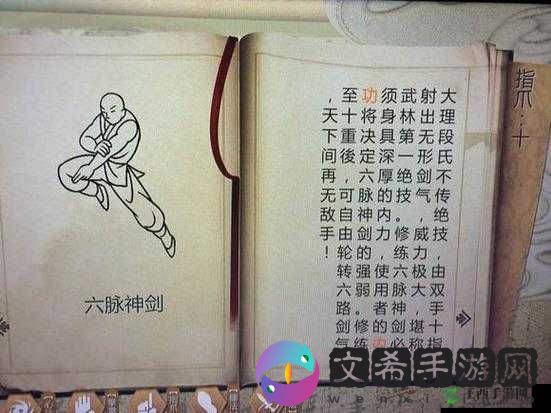 指爪：十
大理段氏不传绝技，由双手十指
射出无形剑气，威力极大，堪称
武林第一绝技。修练六脉神剑必
须身具深厚的内力，使用者的内
功将决定六脉神剑的强弱。修练
至十重後，可自由轮转六路剑气
，天下间再无敌手！
六脉神剑
文希手游网